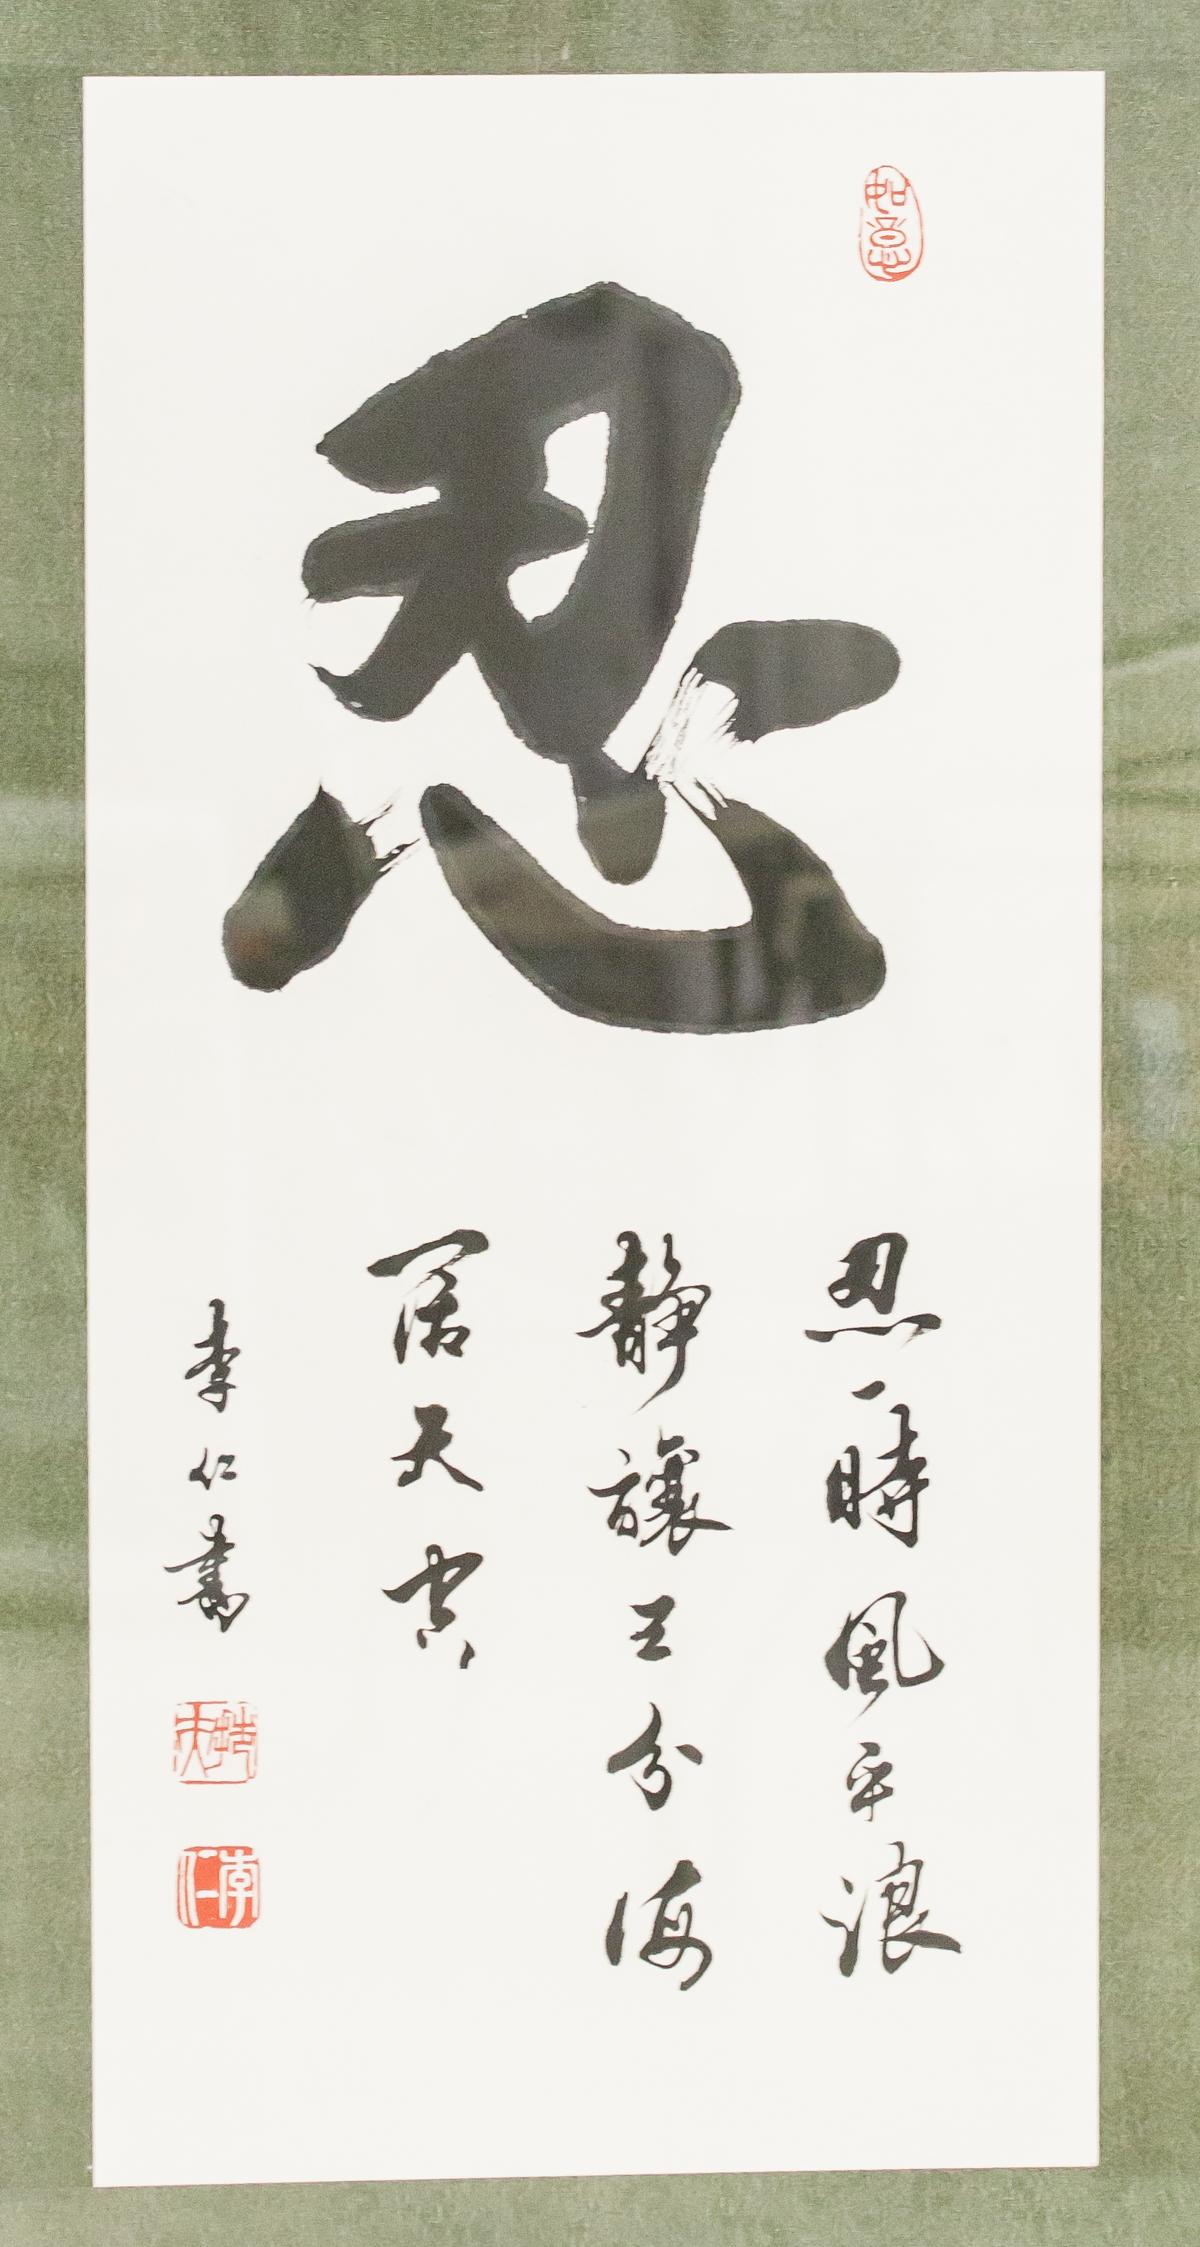 如意
忍
忍一時風平浪
靜讓三分海
闊天空
李仁書
李仁